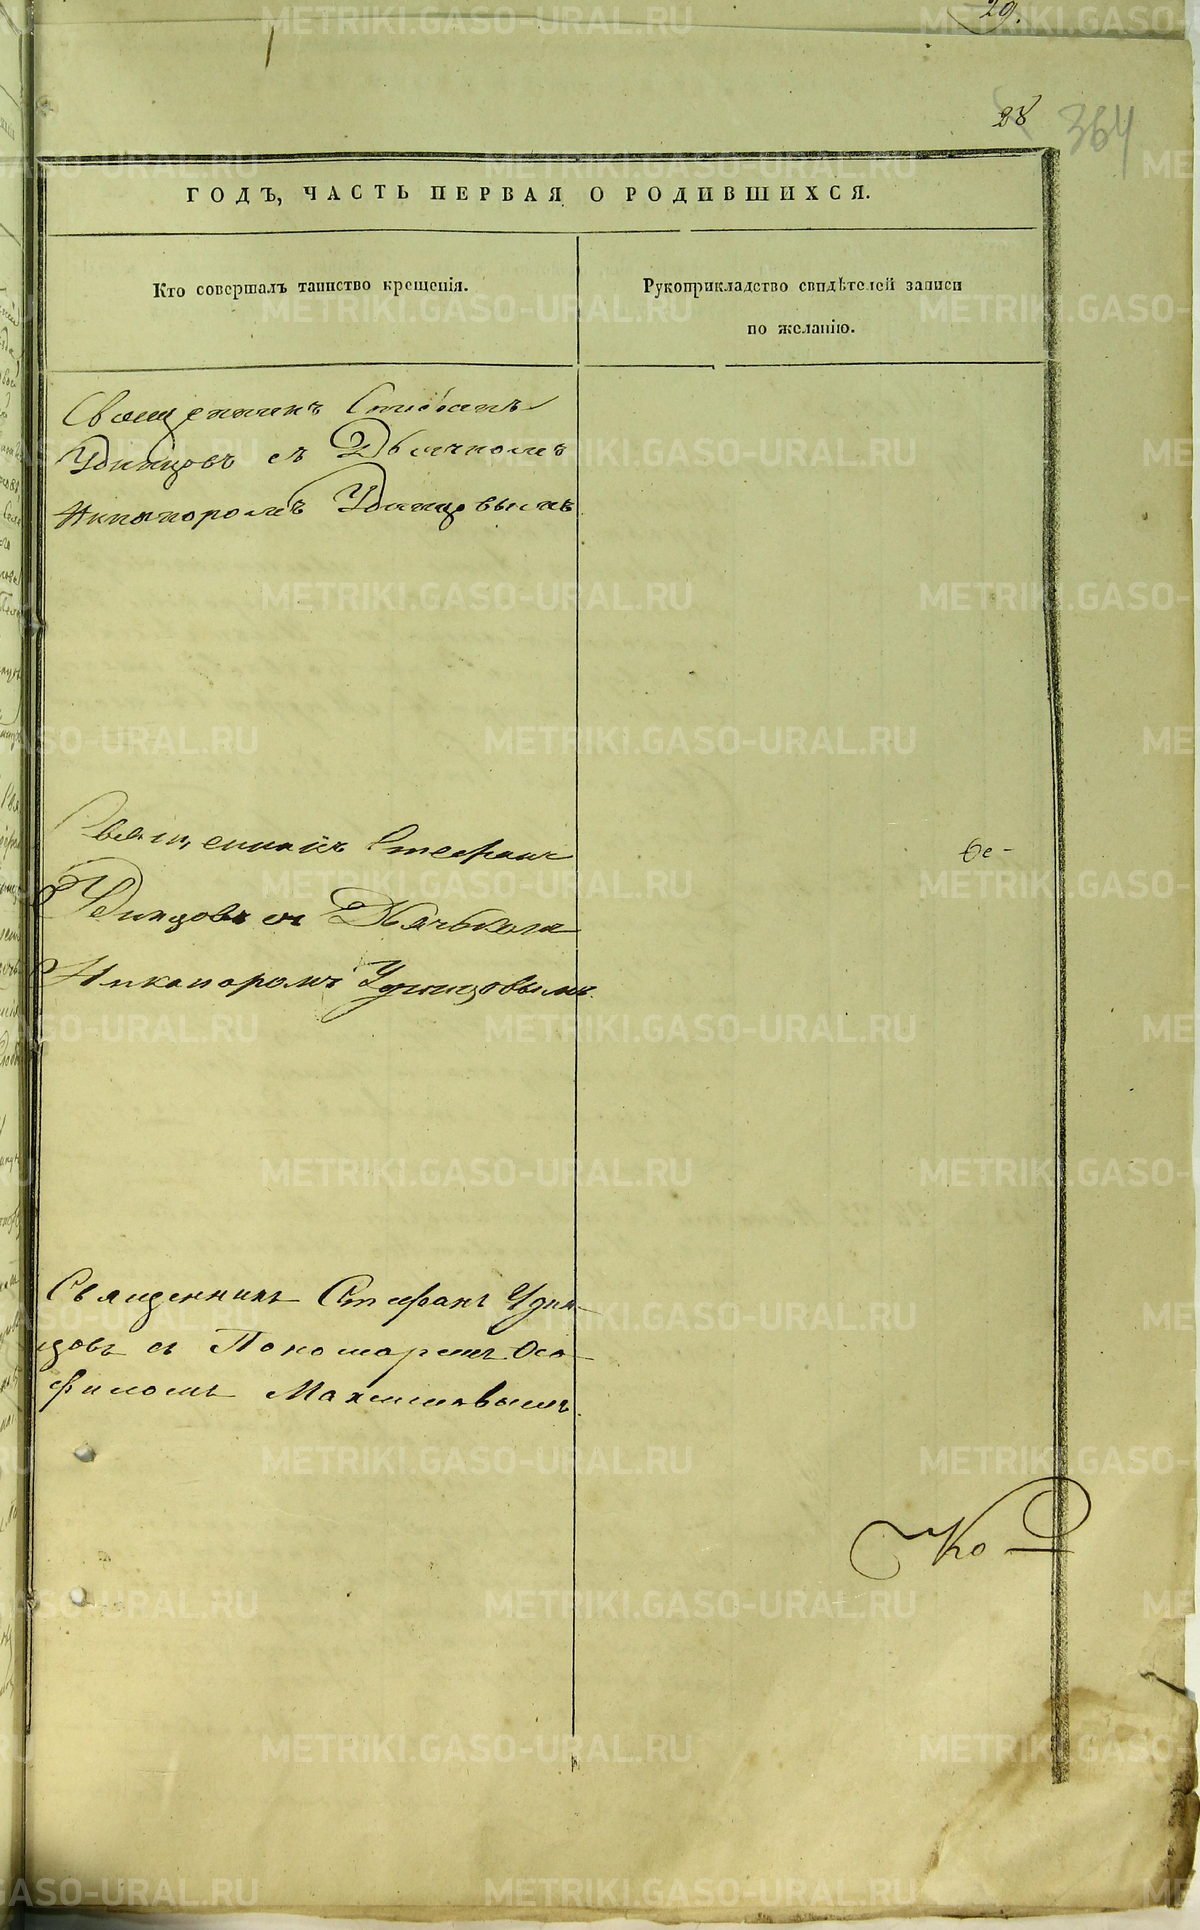 29.
28 364
ГОДЪ, ЧАСТЬ ПЕРВАЯ О РОДИВШИХСЯ.
Кто совершалъ таинство крещенія.
Рукоприкладство свидѣтелей записи
по желанію.
Священникъ Стефанъ
Удинцовъ съ Дьячкомъ
Никаноромъ Удинцовымъ
Священникъ Стефанъ
Удинцовъ съ Дьячькомъ
Никаноромъ Удинцовымъ.
бе-
Священникъ Стефанъ Удин-
цовъ съ Пономаремъ Ѳео-
филомъ
Ко
METRIKI.GASO-URAL.RU